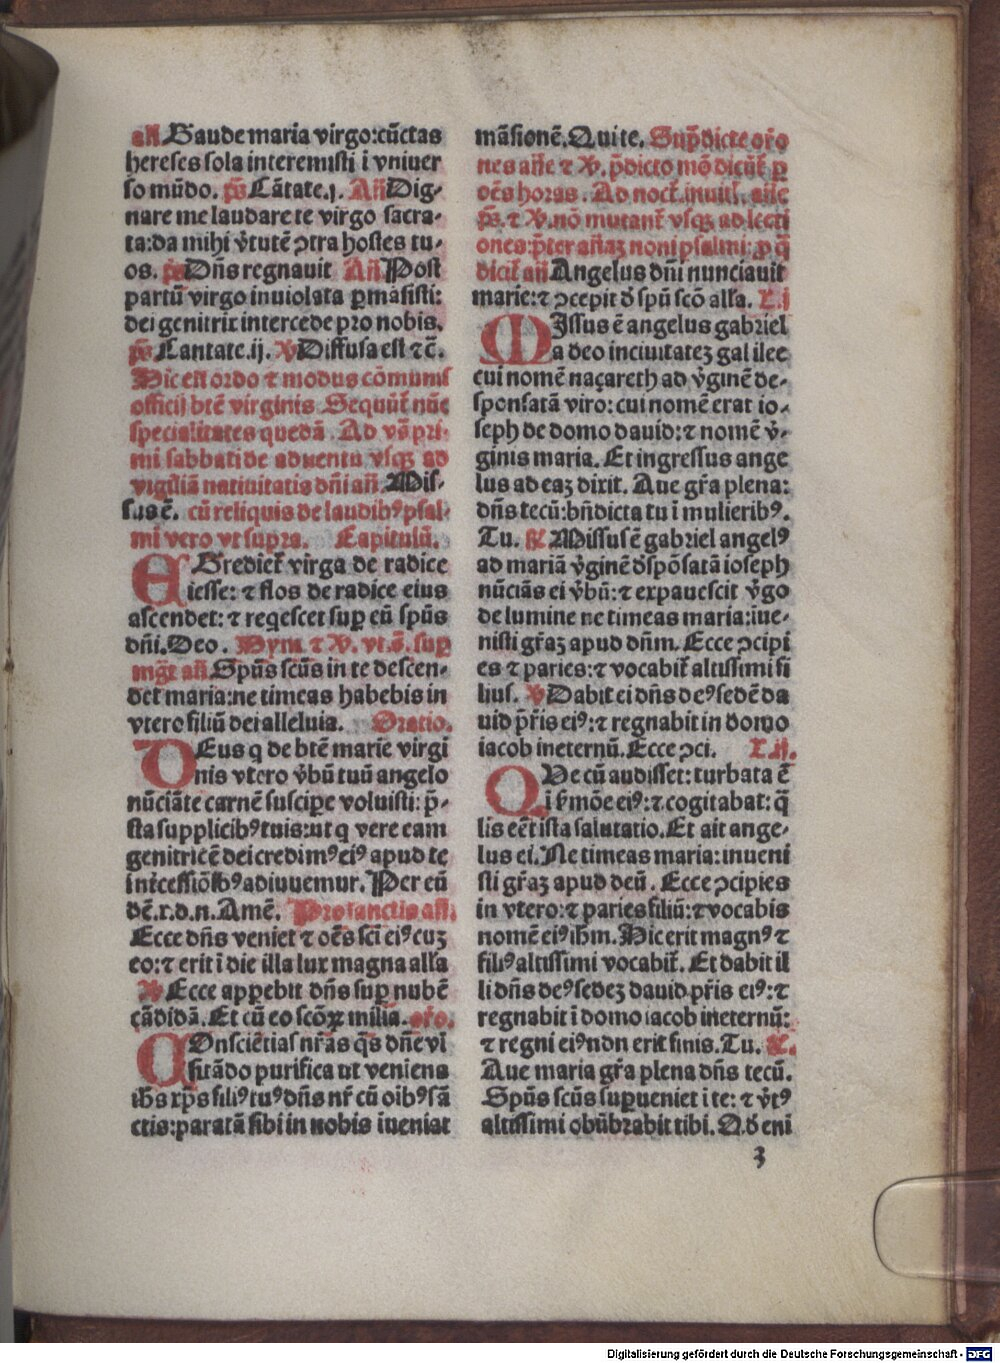 añ Gaude maria virgo:cūctas
hereses sola interemisti ī vniuer
so mūdo. ps̄ Cātate.j. Añ Dig-
nare me laudare te virgo sacra-
ta:da mihi v̓tutē ꝯtra hostes tu-
os. ps̄ Dn̄s regnauit Añ Post
partū virgo inuiolata ꝑmāsisti:
dei genitrix intercede pro nobis.
ps̄ Cantate.ij. ℣ Diffusa est ⁊ č.
Hic est ordo ⁊ modus cōmunis
officij btē virginis. Sequūt̄ nūc
specialitates quedā. Ad vs̄ pri-
mi sabbati de aduentu vsqꝫ ad
vigiliā natiuitatis dn̄i añ. Mis-
sus ē. cū reliquis de laudibꝰ psal-
mi vero vt supra. Capitulū.
EGrediet̄ virga de radice
iesse: ⁊ flos de radice eius
ascendet: ⁊ reqescet suꝑ eū spūs
dn̄i. Deo. Hym. ⁊ ℣. vt.s̄. suꝑ
mgt̄ añ. Spūs scūs in te descen-
det maria:ne timeas habebis in
vtero filiū dei alleluia. Oratio.
DEus q de btē marie virgi
nis vtero v̓bū tuū angelo
nūciāte carnē suscipe voluisti: p̄-
sta supplicibꝰ tuis:ut q vere eam
genitricē dei credimꝰ eiꝰ apud te
int̄cessiōibꝰ adiuuemur. Per eū
dē.x.d.n. Amē. Pro sanctis añ.
Ecce dn̄s veniet ⁊ oēs sci eiꝰ cuꝫ
eo:⁊ erit ī die illa lux magna alla
℣ Ecce apparebit dn̄s suꝑ nubē
cādidā. Et cū eo scōꝝ milia. or̄o.
COnsciētias nr̄as q̄s dn̄e vi
sitādo purifica ut veniens
ih̄s xp̄s filiꝰ tuꝰ dn̄s nr̄ cū oībꝰ sā
ctis:paratā sibi in nobis īueniat
māsionē. Qui te. Sup̄dicte or̄o
nes an̄e ⁊ ℣. p̄dicto mō dicūt̄ ꝑ
oēs horas. Ad noct̄. inuit̄. an̄e
ps̄. ⁊ ℣. nō mutant̄ vsqꝫ ad lecti
ones:p̄ter añaꝫ noni psalmi: ꝓ q̄
dicit̄ añ Angelus dn̄i nunciauit
marie:⁊ ꝯcepit d̓ spū scō alla. L.j
MIssus ē angelus gabriel
a deo in ciuitateꝫ galilee
cui nomē naçareth ad v̓ginē de-
sponsatā viro: cui nomē erat io-
seph de domo dauid:⁊ nomē v̓-
ginis maria. Et ingressus ange
lus ad eaꝫ dixit. Aue gr̄a plena:
dn̄s tecū:bn̄dicta tu ī mulieribꝰ.
Tu. ℟ Missus ē gabriel angelꝰ
ad mariā v̓ginē d̓spōsatā ioseph
nūciās ei v̓bū:⁊ expauescit v̓go
de lumine ne timeas maria:īue-
nisti gr̄aꝫ apud dn̄m. Ecce ꝯcipi
es ⁊ paries:⁊ vocabit̄ altissimi fi
lius. ℣ Dabit ei dn̄s deꝰ sedē da
uid pr̄is eiꝰ:⁊ regnabit in domo
iacob in eternū. Ecce ꝯci. L.ij.
QUe cū audisset: turbata ē
i s̓mōe eiꝰ:⁊ cogitabat: q̄
lis eēt ista salutatio. Et ait ange-
lus ei. Ne timeas maria: inueni
sti gr̄aꝫ apud deū. Ecce ꝯcipies
in vtero:⁊ paries filiū:⁊ vocabis
nomē eiꝰ ih̄m. Hic erit magnꝰ ⁊
filiꝰ altissimi vocabit̄. Et dabit il
li dn̄s deꝰ sedeꝫ dauid pr̄is eiꝰ:⁊
regnabit ī domo iacob in eternū:
⁊ regni eiꝰ non erit finis. Tu. ℟.
Aue maria gr̄a plena dn̄s tecū.
Spūs scūs suꝑueniet ī te: ⁊ v̓tꝰ
altissimi obūbrabit tibi. Qd̓ eni
3
Digitalisierung gefördert durch die Deutsche Forschungsgemeinschaft - DFG